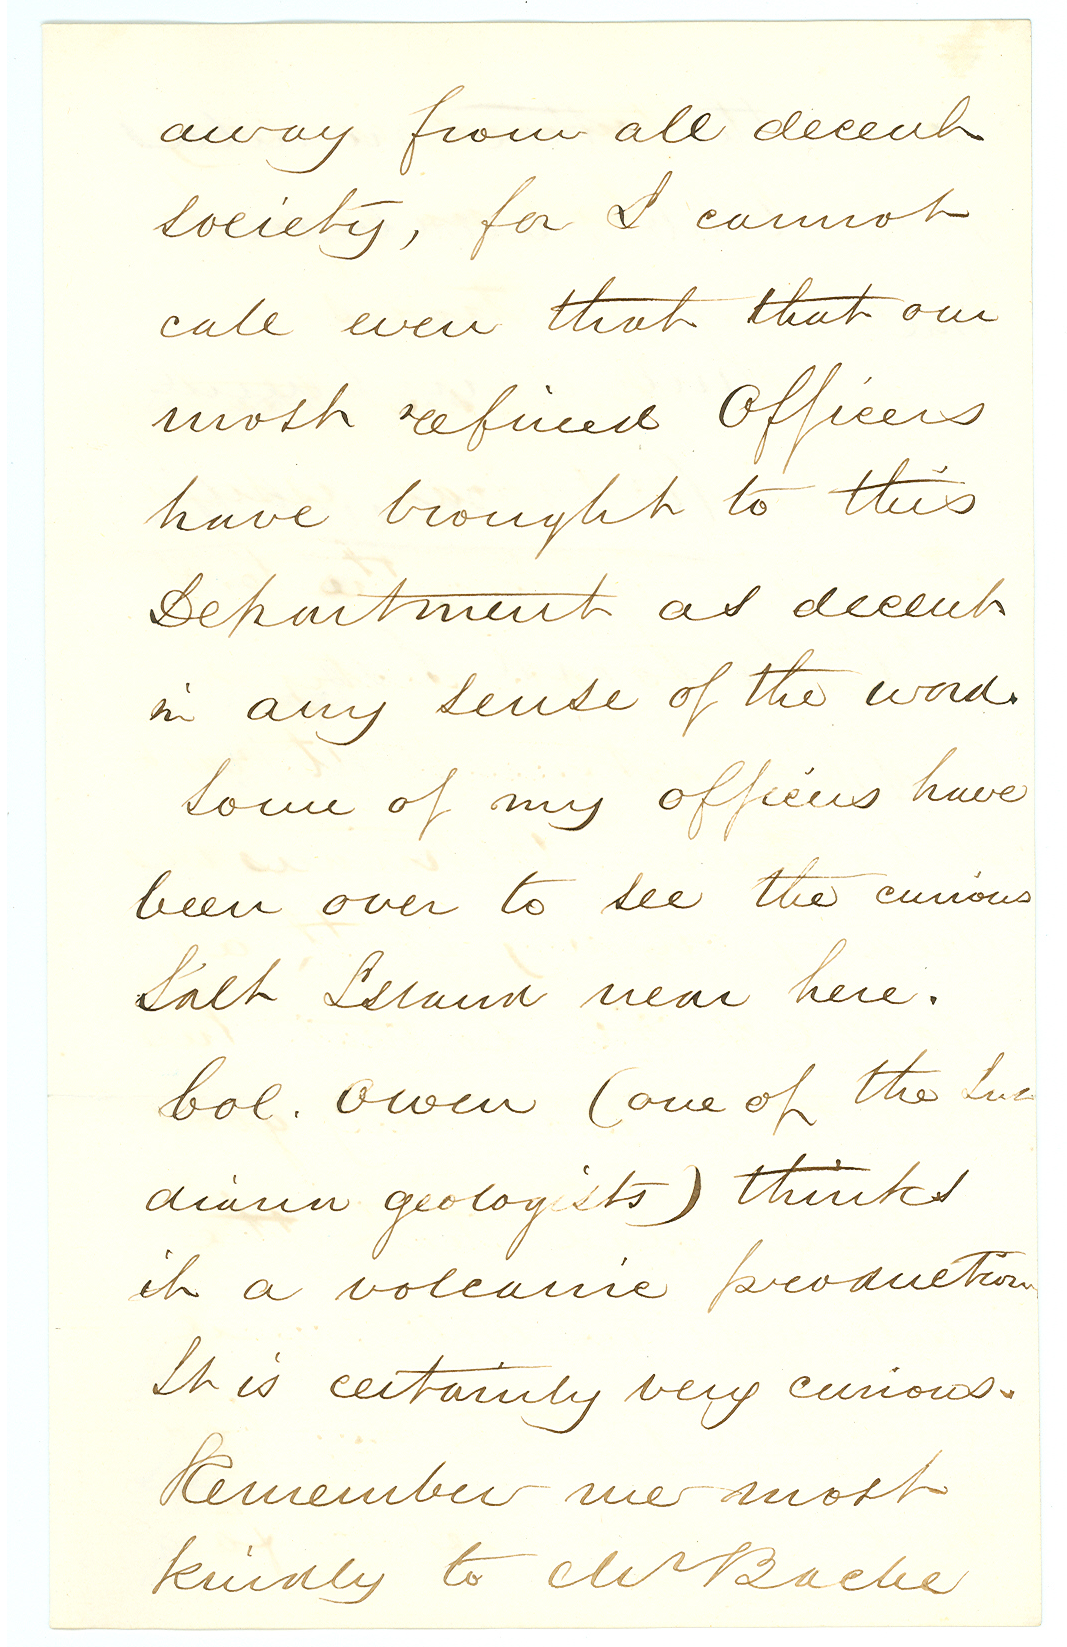 away from all decent
society, for I cannot
call even that that our
most refined Officers
have brought to this
Department as decent
in any sense of the word.
Some of my officers have
been over to see the curious
Salt Island near here.
Col. Owen (one of the In
diana geologists) thinks
it a volcanic production
It is certainly very curious.
Remember me most
kindly to Mr Bache